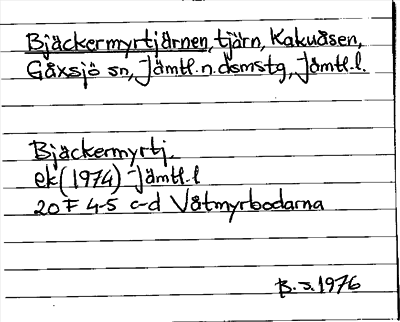 Bjäckermyrtjärnen, tjärn, Kakuåsen,
Gåxsjö sn, Jämtl. n. dsmstg, Jämtl. l.
Bjäckermyrtj.
ek (1974) Jämtl. l
20 F 4-5 c-d Våtmyrbodarna
B. S. 1976